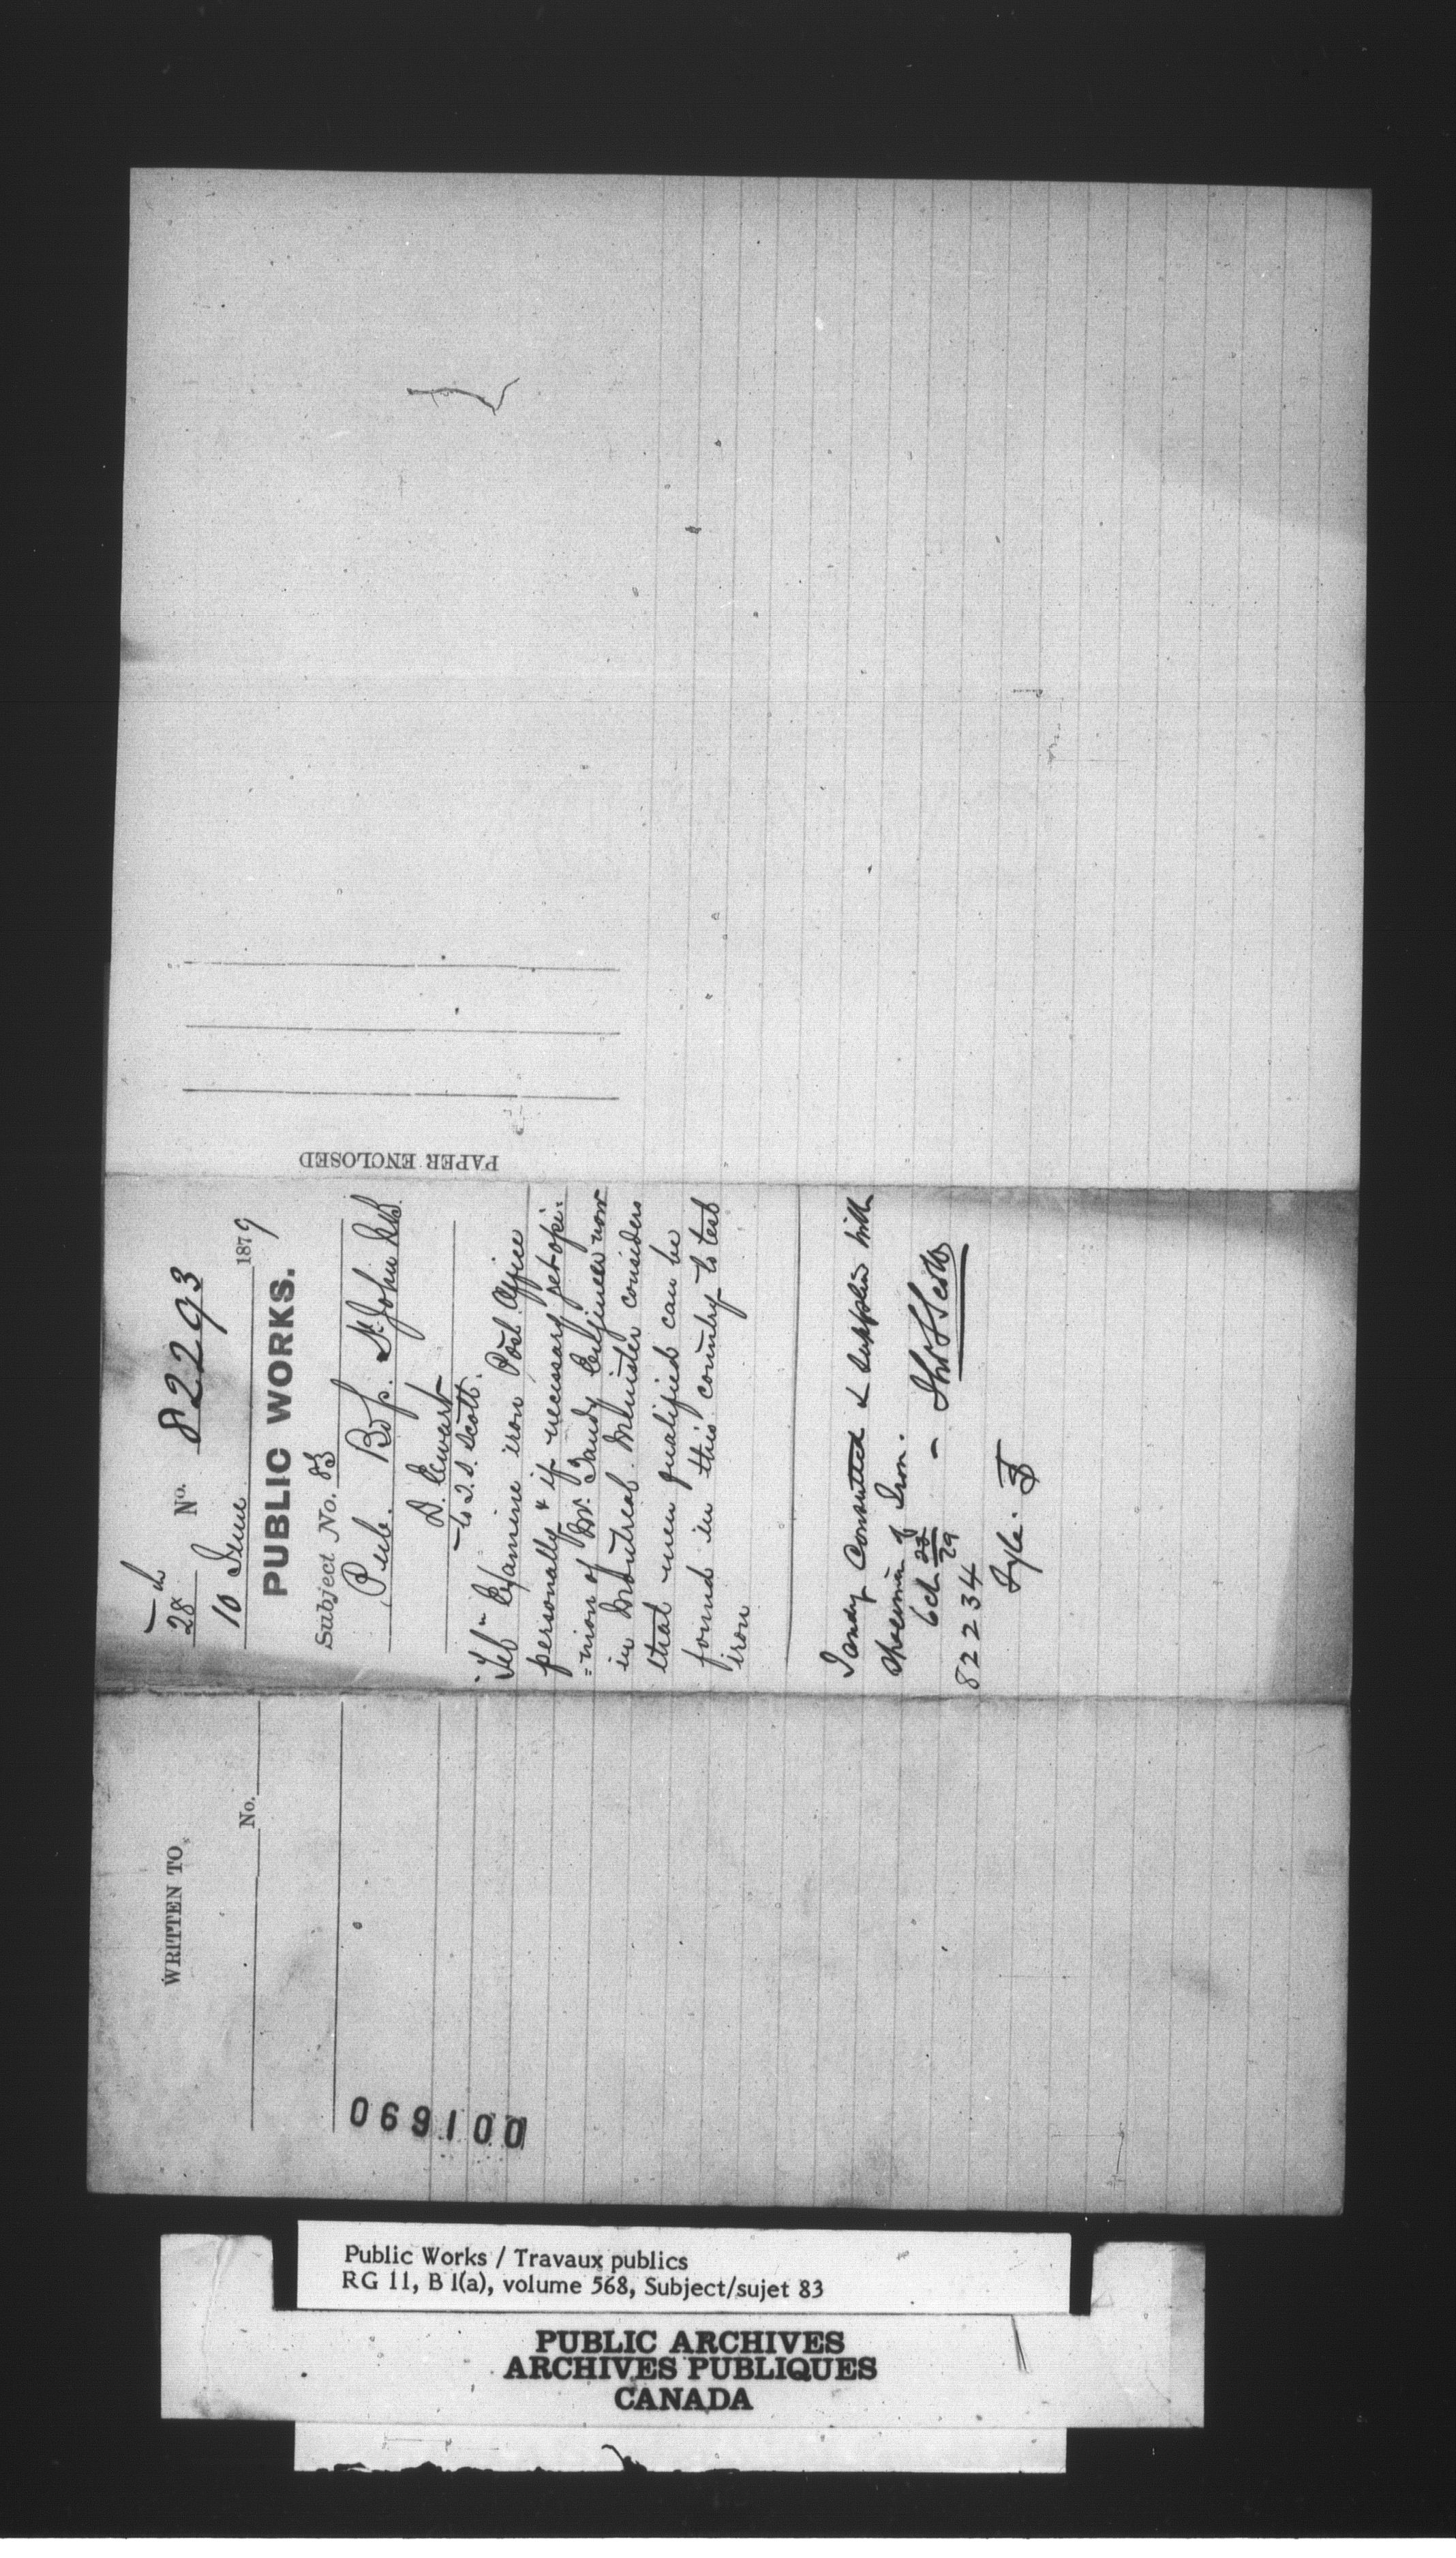 28 No. 82293
10 June 1879
PUBLIC WORKS.
Subject No. 83
Pub. Bdgs. St. John NB
D. Ewart
to T. S. Scott.
"Tel" Examine iron Post Office
personally & if necessary get opi=
=nion of Mr. Tandy Engineer now
in Montreal. Minister considers
that men qualified can be
found in this country to test
iron
Tandy Consulted & supplied with
specimen of Iron.
Thos S Scott
82234
Fyle.
PAPER ENCLOSED
WRITTEN TO
No.
069100
Public Works / Travaux publics
RG 11, B 1(a), volume 568, Subject/sujet 83
PUBLIC ARCHIVES
ARCHIVES PUBLIQUES
CANADA